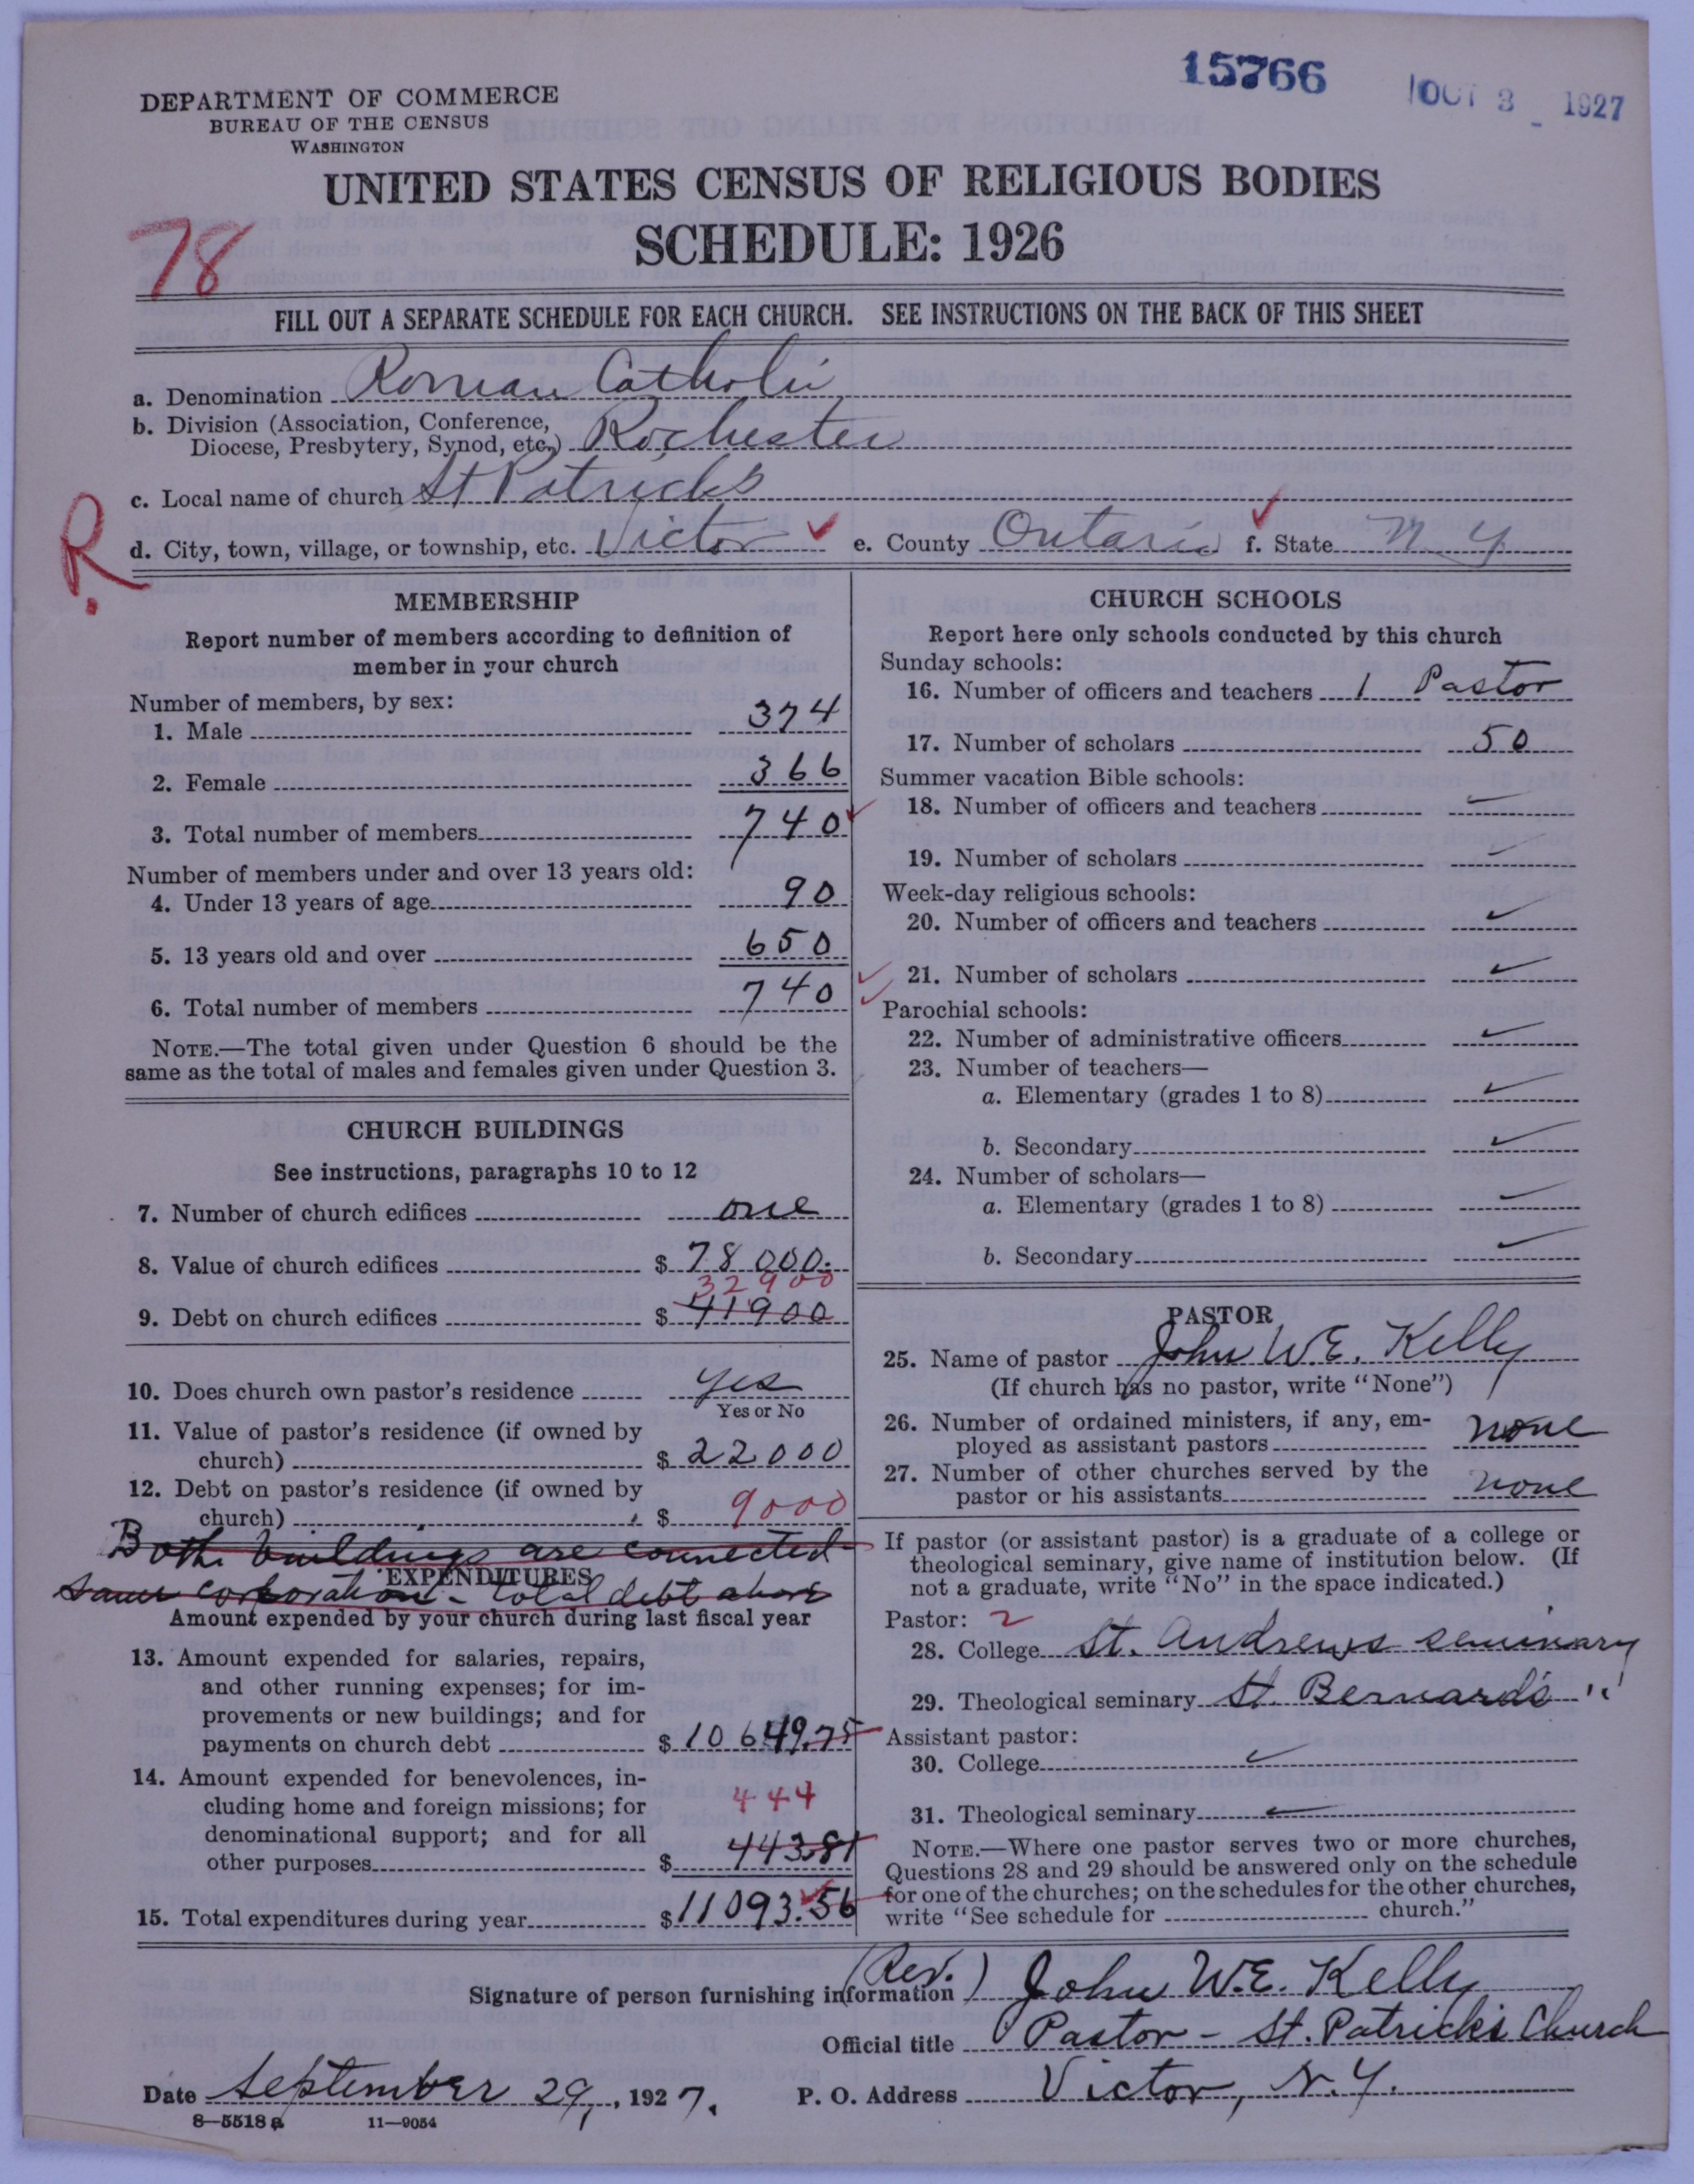 15766
OCT 3 1927
DEPARTMENT OF COMMERCE
BUREAU OF THE CENSUS
WASHINGTON
UNITED STATES CENSUS OF RELIGIOUS BODIES
78
SCHEDULE: 1926
FILL OUT A SEPARATE SCHEDULE FOR EACH CHURCH. SEE INSTRUCTIONS ON THE BACK OF THIS SHEET
a. Denomination Roman Catholic
b. Division (Association, Conference,
Diocese, Presbytery, Synod, etc.) Rochester
c. Local name of church St Patricks
R.
d. City, town, village, or township, etc. Victor ✓ e. County Ontario ✓ f. State N.Y
MEMBERSHIP
Report number of members according to definition of
member in your church
Number of members, by sex:
1. Male 374
2. Female 366
3. Total number of members 740 ✓
Number of members under and over 13 years old:
4. Under 13 years of age 90
5. 13 years old and over 650
6. Total number of members 740 ✓
NOTE.—The total given under Question 6 should be the
same as the total of males and females given under Question 3.
CHURCH BUILDINGS
See instructions, paragraphs 10 to 12
7. Number of church edifices one
8. Value of church edifices $ 78000.
32900
9. Debt on church edifices $ 41900
10. Does church own pastor's residence yes
Yes or No
11. Value of pastor's residence (if owned by
church) $ 22000
12. Debt on pastor's residence (if owned by
church) $ 9000
Both buildings are connected
EXPENDITURES
same corporation - total debt above
Amount expended by your church during last fiscal year
13. Amount expended for salaries, repairs,
and other running expenses; for im-
provements or new buildings; and for
payments on church debt $ 10649.75
14. Amount expended for benevolences, in-
cluding home and foreign missions; for 444
denominational support; and for all
other purposes $ 443.81
15. Total expenditures during year $ 11093.56
CHURCH SCHOOLS
Report here only schools conducted by this church
Sunday schools:
16. Number of officers and teachers 1 Pastor
17. Number of scholars 50
Summer vacation Bible schools:
18. Number of officers and teachers
19. Number of scholars
Week-day religious schools:
20. Number of officers and teachers ✓
21. Number of scholars ✓
Parochial schools:
22. Number of administrative officers ✓
23. Number of teachers—
a. Elementary (grades 1 to 8) ✓
b. Secondary ✓
24. Number of scholars—
a. Elementary (grades 1 to 8) ✓
b. Secondary ✓
PASTOR
25. Name of pastor John W.E. Kelly
(If church has no pastor, write "None")
26. Number of ordained ministers, if any, em-
ployed as assistant pastors none
27. Number of other churches served by the
pastor or his assistants none
If pastor (or assistant pastor) is a graduate of a college or
theological seminary, give name of institution below. (If
not a graduate, write "No" in the space indicated.)
Pastor: 2
28. College St. Andrews seminary
29. Theological seminary St Bernard's "
Assistant pastor:
30. College ✓
31. Theological seminary ✓
NOTE.—Where one pastor serves two or more churches,
Questions 28 and 29 should be answered only on the schedule
for one of the churches; on the schedules for the other churches,
write "See schedule for church."
Signature of person furnishing information (Rev.) John W.E. Kelly
Official title Pastor - St. Patrick's Church
Date September 29, 1927. P. O. Address Victor, N.Y.
8—5518 a 11—9054